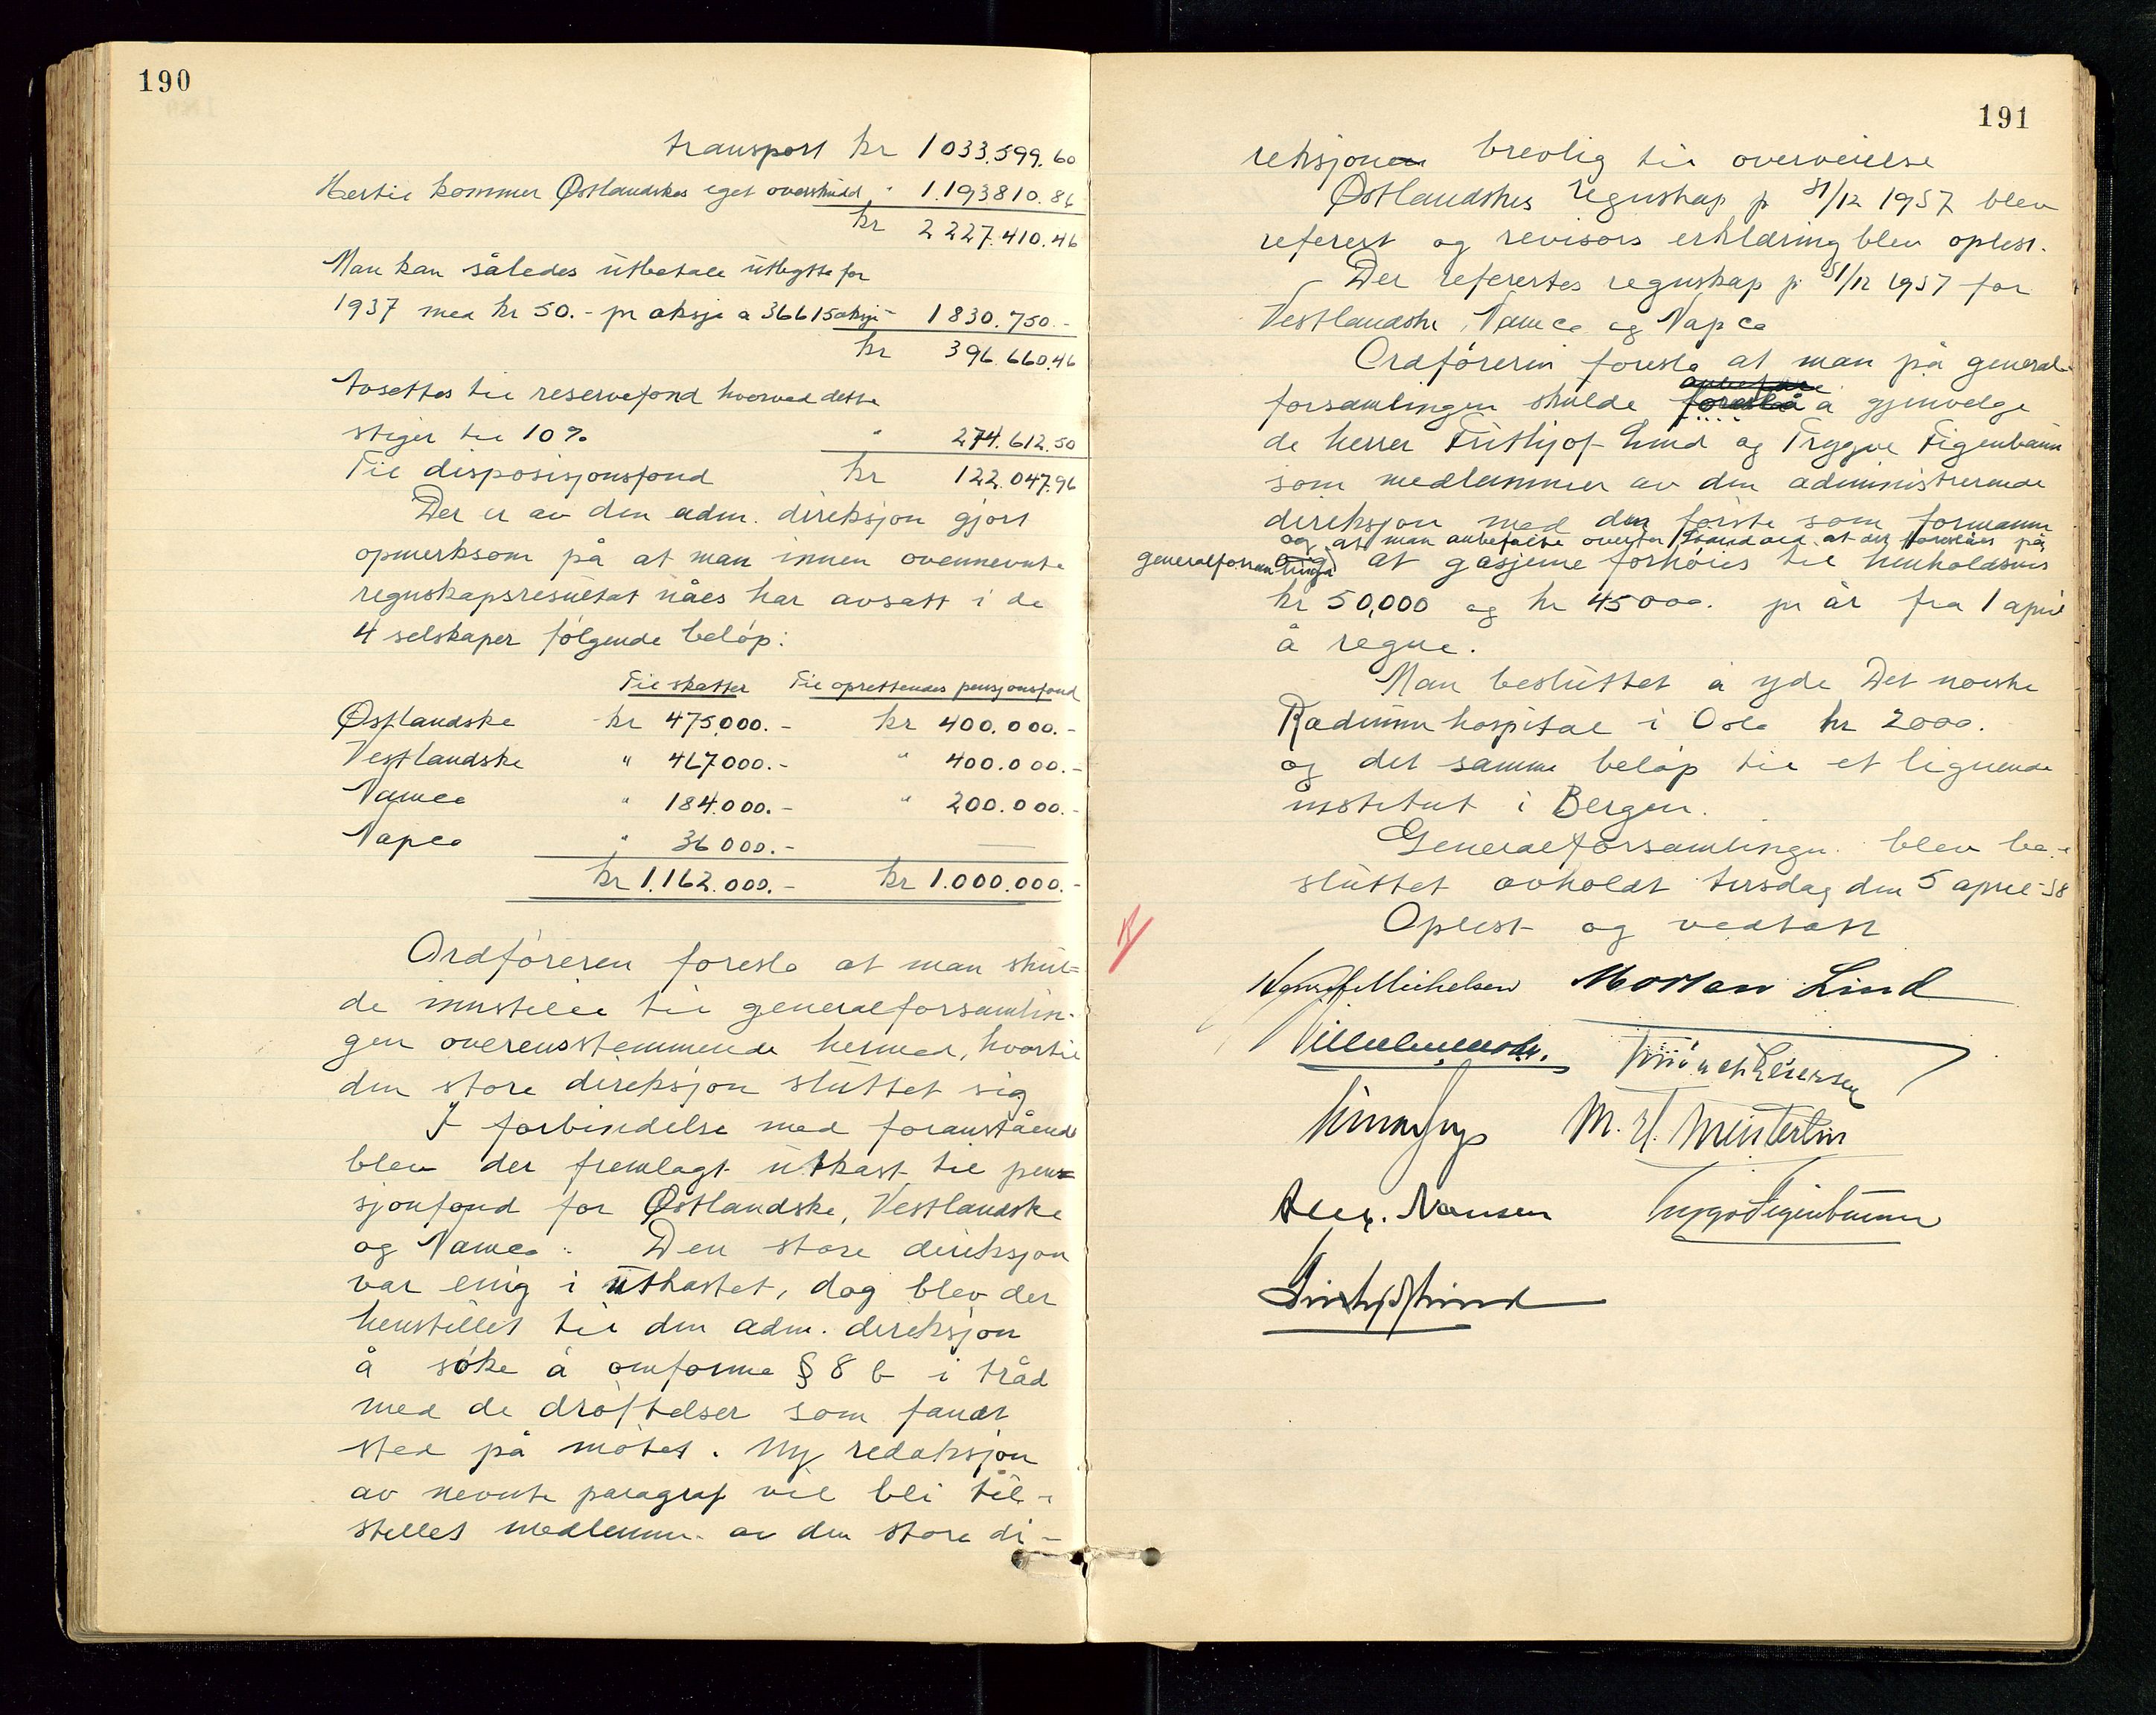 190
transport kr 1033.599.60
Hertil kommer Østlandskes eget overskudd " 1.193810.86
kr 2227.410.46
Man kan således utbetale utbytte for
1937 med kr 50.- pr aksje a 36615 aksje - 1830.750.-
kr 396.660.46
Avsettes til reservefond hvorved dette
stiger til 10% " 274.612.50
Til disposisjonsfond kr 122.047.96
Der er av den adm. direksjon gjort
opmerksom på at man innen ovennevnte
regnskapsresultat nåes har avsatt i de
4 selskaper følgende beløp:
Til skatter Til oprettendes pensjonsfond
Østlandske kr 475.000.- kr 400.000.-
Vestlandske " 467000.- " 400.000.-
Namco " 184.000.- " 200.000.-
Napco " 36000.- —
kr 1.162.000.- kr 1.000.000.-
Ordføreren foreslo at man skul=
de innstille til generalforsamlin-
gen overensstemmende hermed, hvortil
den store direksjon sluttet sig
I forbindelse med foranstående
blev der fremlagt utkast til pen=
sjonfond for Østlandske, Vestlandske
og Namco. Den store direksjon
var enig i utkastet, dog blev der
henstillet til den adm. direksjon
å søke å omforme § 8 b i tråd
med de drøftelser som fandt
sted på møtet. Ny redaksjon
av nevnte paragraf vil bli til-
stillet medlemm. av den store di-
191
reksjonen brevlig til overveielse
Østlandskes regnskap p 31/12 1937 blev
referert og revisors erklæring blev oplest.
Der refertes regnskap p. 31/12 1937 for
Vestlandske, Namco og Napco
Ordføreren foreslo at man på general-
anbefale
forsamlingen skulde foreslå å gjenvelge
de herrer Frithjof Lind og Trygve Figenbaum
som medlemmer av den administrerende
direksjon med den første som formann
og at man anbefalte overfor Standard at der foreslåes på
generalforsamlingen og at gasjene forhøies til henholdsvis
kr 50,000 og kr 45000. pr år fra 1 april
å regne.
Man besluttet å yde Det norske
Radiumhospital i Oslo kr 2000.
og det samme beløp til et lignende
institut i Bergen.
Generalforsamlingen blev be-
sluttet avholdt tirsdag den 5 april-38
Oplest og vedtatt
Michelsen Morten Lind
M. H.
Alex. Nansen Trygve Figenbaum
Frithjof Lind